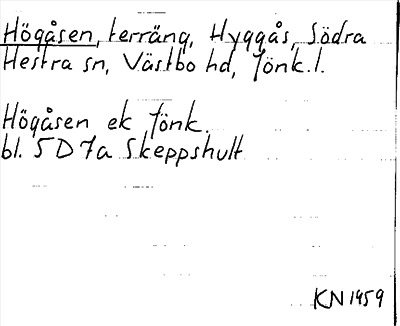 Högåsen, terräng, Hyggås, Södra
Hestra sn, Västbo hd, Jönk.l.
Högåsen ek Jönk.
bl. 5D 7a Skeppshult
KN 1959